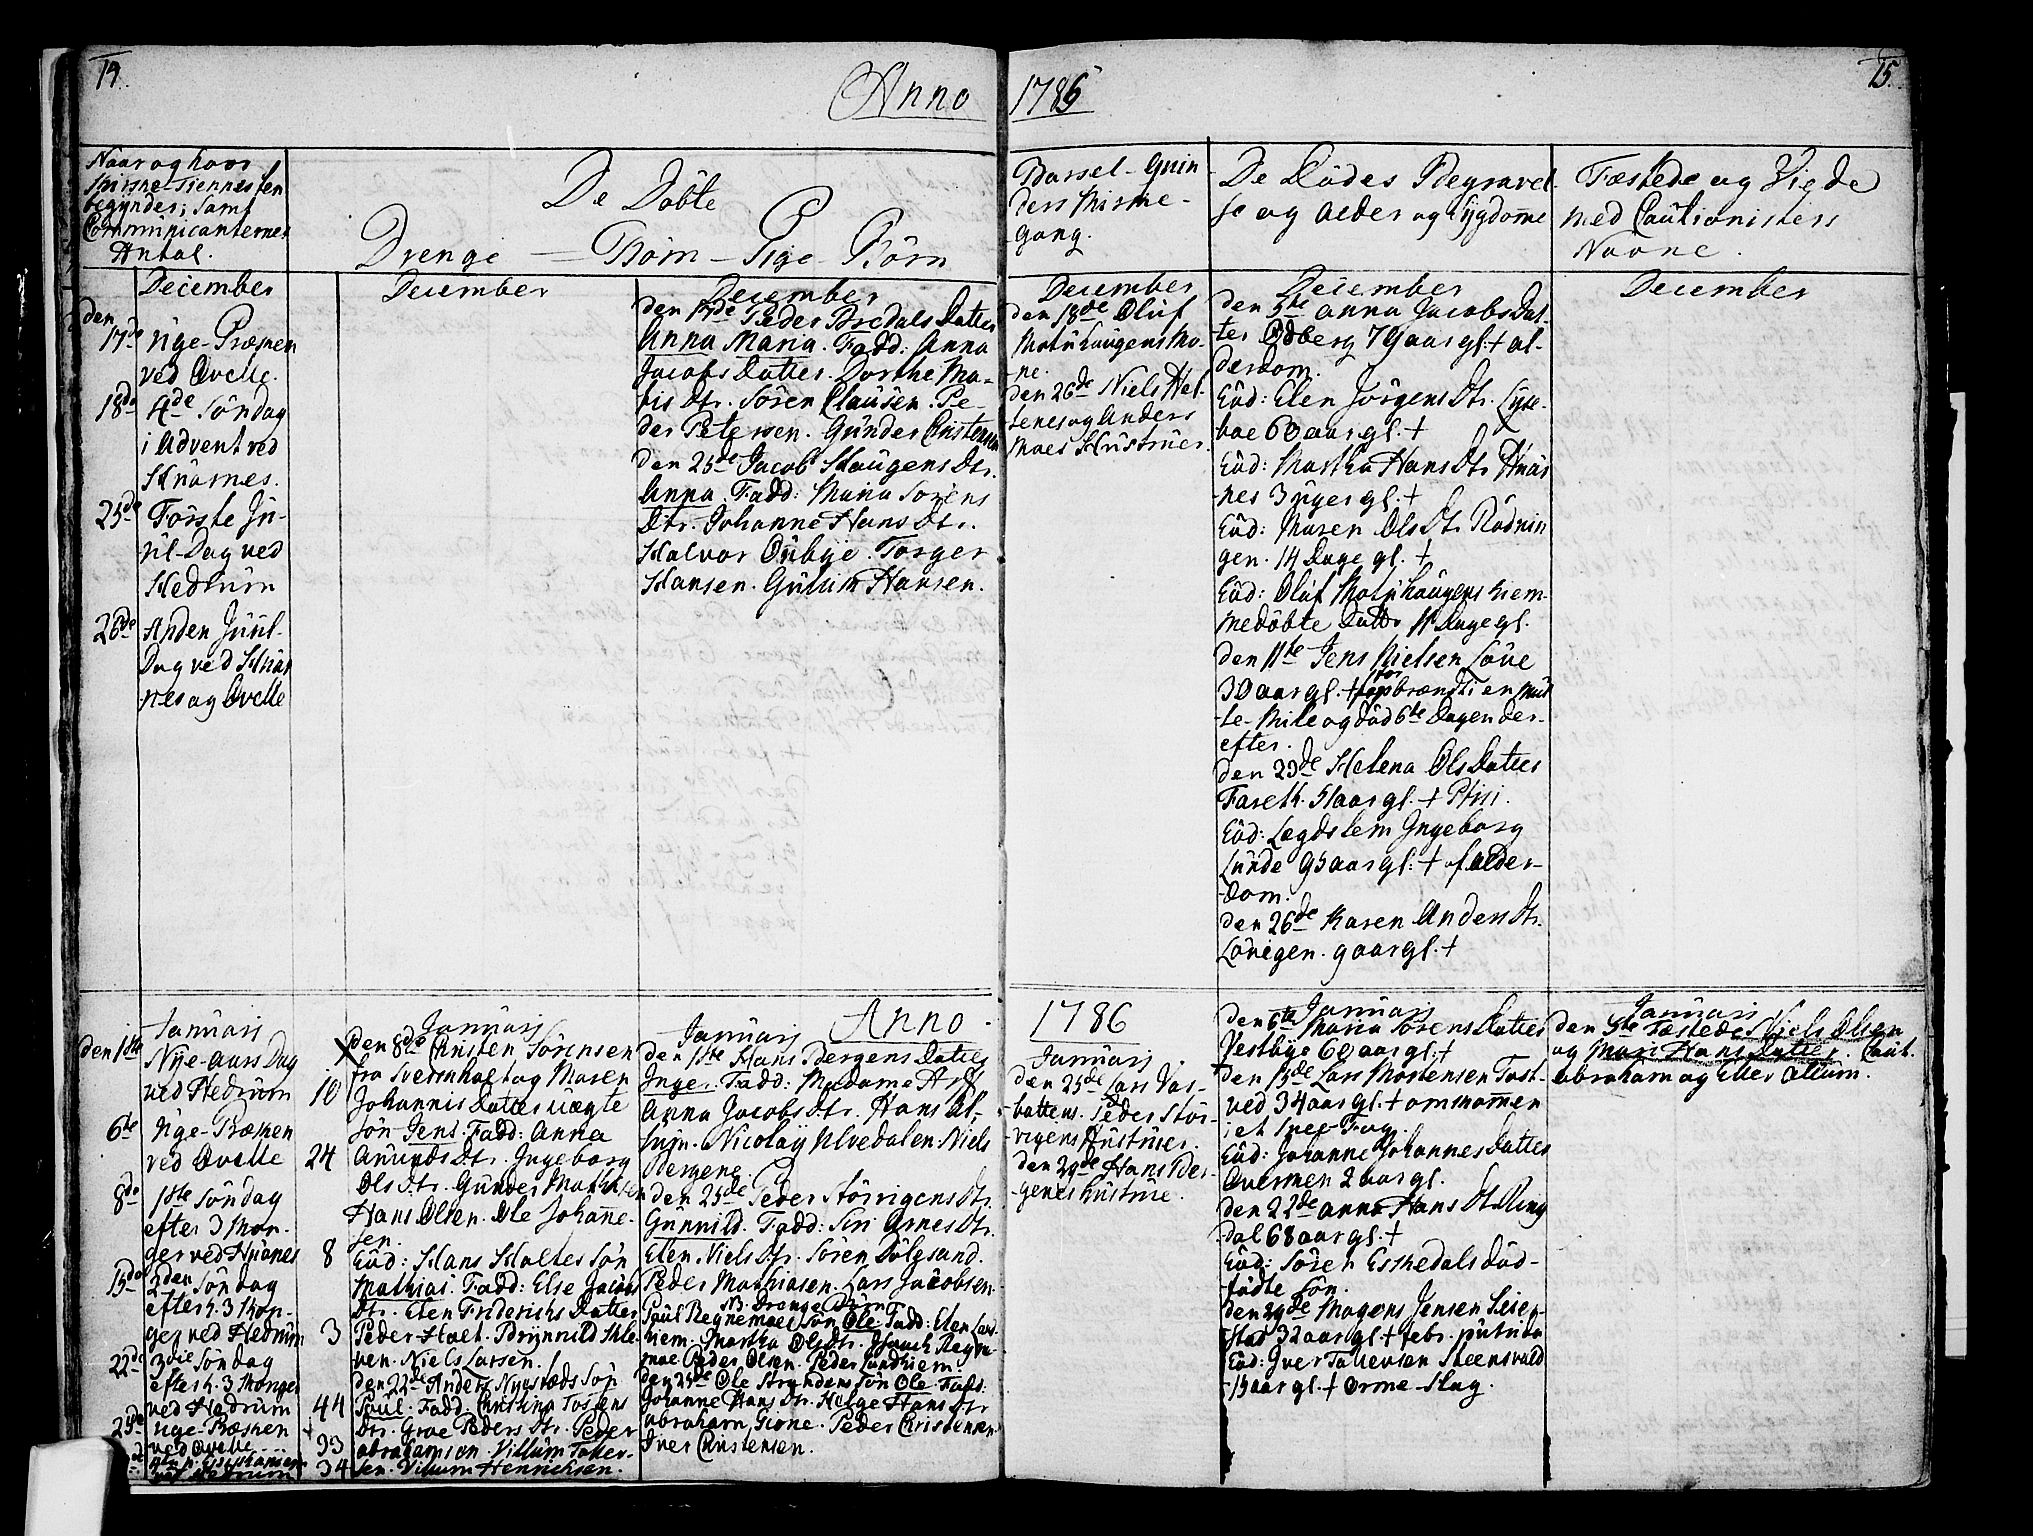 14.
Anno 1785
15.
Naar og hvor
Kirke-Tienesten
begyndes; samt
Communicanternes
Antal.
De Döbte
Drenge — Börn — Pige Börn
Barsel-Quin
ders Kirke-
gang.
De Dödes Begravel-
se og alder og Sygdomme
Fæstede og Viede
med Cautionisters
Navne.
December
den
17de Uge-Præken
ved Qvelle.
18de 4de Söndag
i Advent ved
Hvarnes.
25de Förste Ju-
ul-Dag ved
Hedrum
26de Anden Juul-
Dag ved Hvar
nes og Qvelle
December
December
den 17de Peder Bredals Datter
Anna Maria. Fadd: Anna
Jacobs Datter. Dorthe Ma-
this Dtr. Sören Clausen. Pe-
der Petersen. Gunder Christensen
den 25de Jacob Haugens Dtr.
Anna. Fadd: Maria Sörens
Dtr. Johanne Hans Dtr.
Halvor Oubye. Torger
Hansen. Gulum Hansen.
December
den 18de Oluf
Molnhaugens Ko-
ne.
den 26de Niels Hel-
tenes og Anders
Moes Hustruer.
December
den 5te Anna Jacobs Dat-
ter Odberg 79 aar gl: + al-
derdom.
Eod: Elen Jörgens Dtr. Lyse-
boe 60 aar gl. +
Eod: Martha Hans Dtr. Hvar
nes 3 uger gl. +
Eod: Maren Ols Dtr. Rödnin
gen. 14 Dage gl. +
Eod: Oluf Molnhaugens hiem
medöbte Datter 11 Dage gl.
den 11te Jens Nielsen Löve
30 aar gl. + for brændt i en
te-Mile og död 6te Dagen der-
efter.
den 23de Helena Ols Datter
Fareth. 51 aar gl. + Phisi.
Eod: Lægdslem Ingeborg
Lunde 95 aar gl: + af alder-
dom.
den 26de Karen Anders Dtr.
Lövigen. 9 aar gl. +
December
Anno 1786
Januarij
den 1ste Nye-aars Dag
ved Hedrum 10
6te Uge-Præken
ved Qvelle 24
8de 1ste Söndag
efter 3 Kon-
ger ved Hvarnes 8
15de 2den Söndag
efter h. 3 Kon-
ger ved Hedrum 3
22de 3die Söndag
efter h. 3 Konger
ved Hedrum 44
25de Uge-Præken
ved Qvelle 93
ved Hedrum 34
Januarij
den 8de Christen Sörensen
fra Svernholt og Maren
Johannis Datter uægte
sön Jens. Fadd: Anna
Amunds Dtr. Ingeborg
Ols Dtr. Gunder Mathisen
Hans Olsen. Ole Johanne-
sen.
Eod: Hans Holtes Sön
Mathias. Fadd: Else Jacobs
Dtr. Elen Friderichs Datter
Peder Holt. Brynnild Kle-
ven. Niels Larsen.
den 22de Anders Nystæds Sön
Poul. Fadd: Christina Tostens
Dtr. Groe Peders Dtr. Peder
Abrahamson. Villum Toller-
sen. Villum Henrichsen.
Januarij
den 1ste Hans Bergens Datter
Inger. Fadd: Madame Arff
Anna Jacobs Dtr. Hans
Nicolay Ulvedalen. Niels
Bergene.
den 25de Peder Störrigens Dtr.
Gunnild. Fadd: Siri Arnes Dtr.
Elen Niels Dtr. Sören Bölgsand.
Peder Mathiasen. Lars Jacobsen.
NB. Drenge Börn
Poul Regnemoes Sön Ole. Fadd: Elen
hiem. Martha Ols Dtr. Isaach Regne-
moe Peder Olsen. Peder Sundhiem.
den 25de Ole Strandens Sön Ole. Fadd:
Johanne Hans Dtr. Helge Hans Dtr.
Abraham Gione. Peder Christensen
Iver Christensen.
Januarij
den 25de Lars Vas-
bottens. Peder Stör-
rigens Hustruer.
den 29de Hans Ber-
genes Hustrue.
Januarij
den 6te Maria Sörens Datter
Vestbye 60 aar gl. +
den 15de Lars Mortensen Tost-
ved 34 aar gl. + omkommen
i et Snee-Fog.
Eod: Johanne Johannes Datter
Qvermen 2 aar gl.
den 22de Anne Hans Dtr. Ring
dal 68 aar gl. +
Eod: Sören Eskedals död-
födte Sön.
den 29de Mogens Jensen Seier-
sted 32 aar gl + febr. putrida
Eod: Iver Tollevsen Steensvald
15 aar gl. + Orme-Slag.
Januarij
den 5te Fæstede Niels Olsen
og Mari Hans Datter. Caut.
Abraham og Eller Allum.